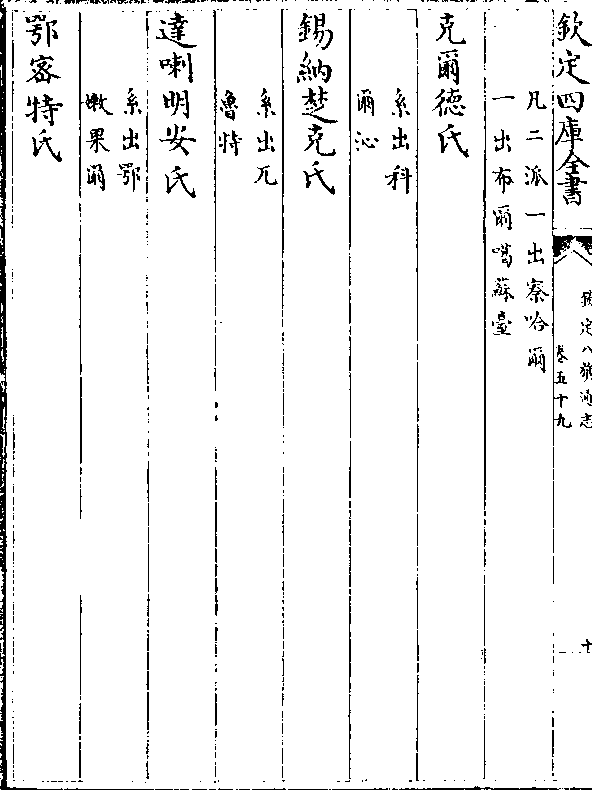 欽定四庫全書
欽定八旗通志
卷五十九
十
凡二派一出察哈爾
一出布爾噶蘇臺
克爾德氏
系出科
爾沁
錫納楚克氏
系出兀
魯特
達喇明安氏
系出鄂
嫩果爾
鄂容特氏